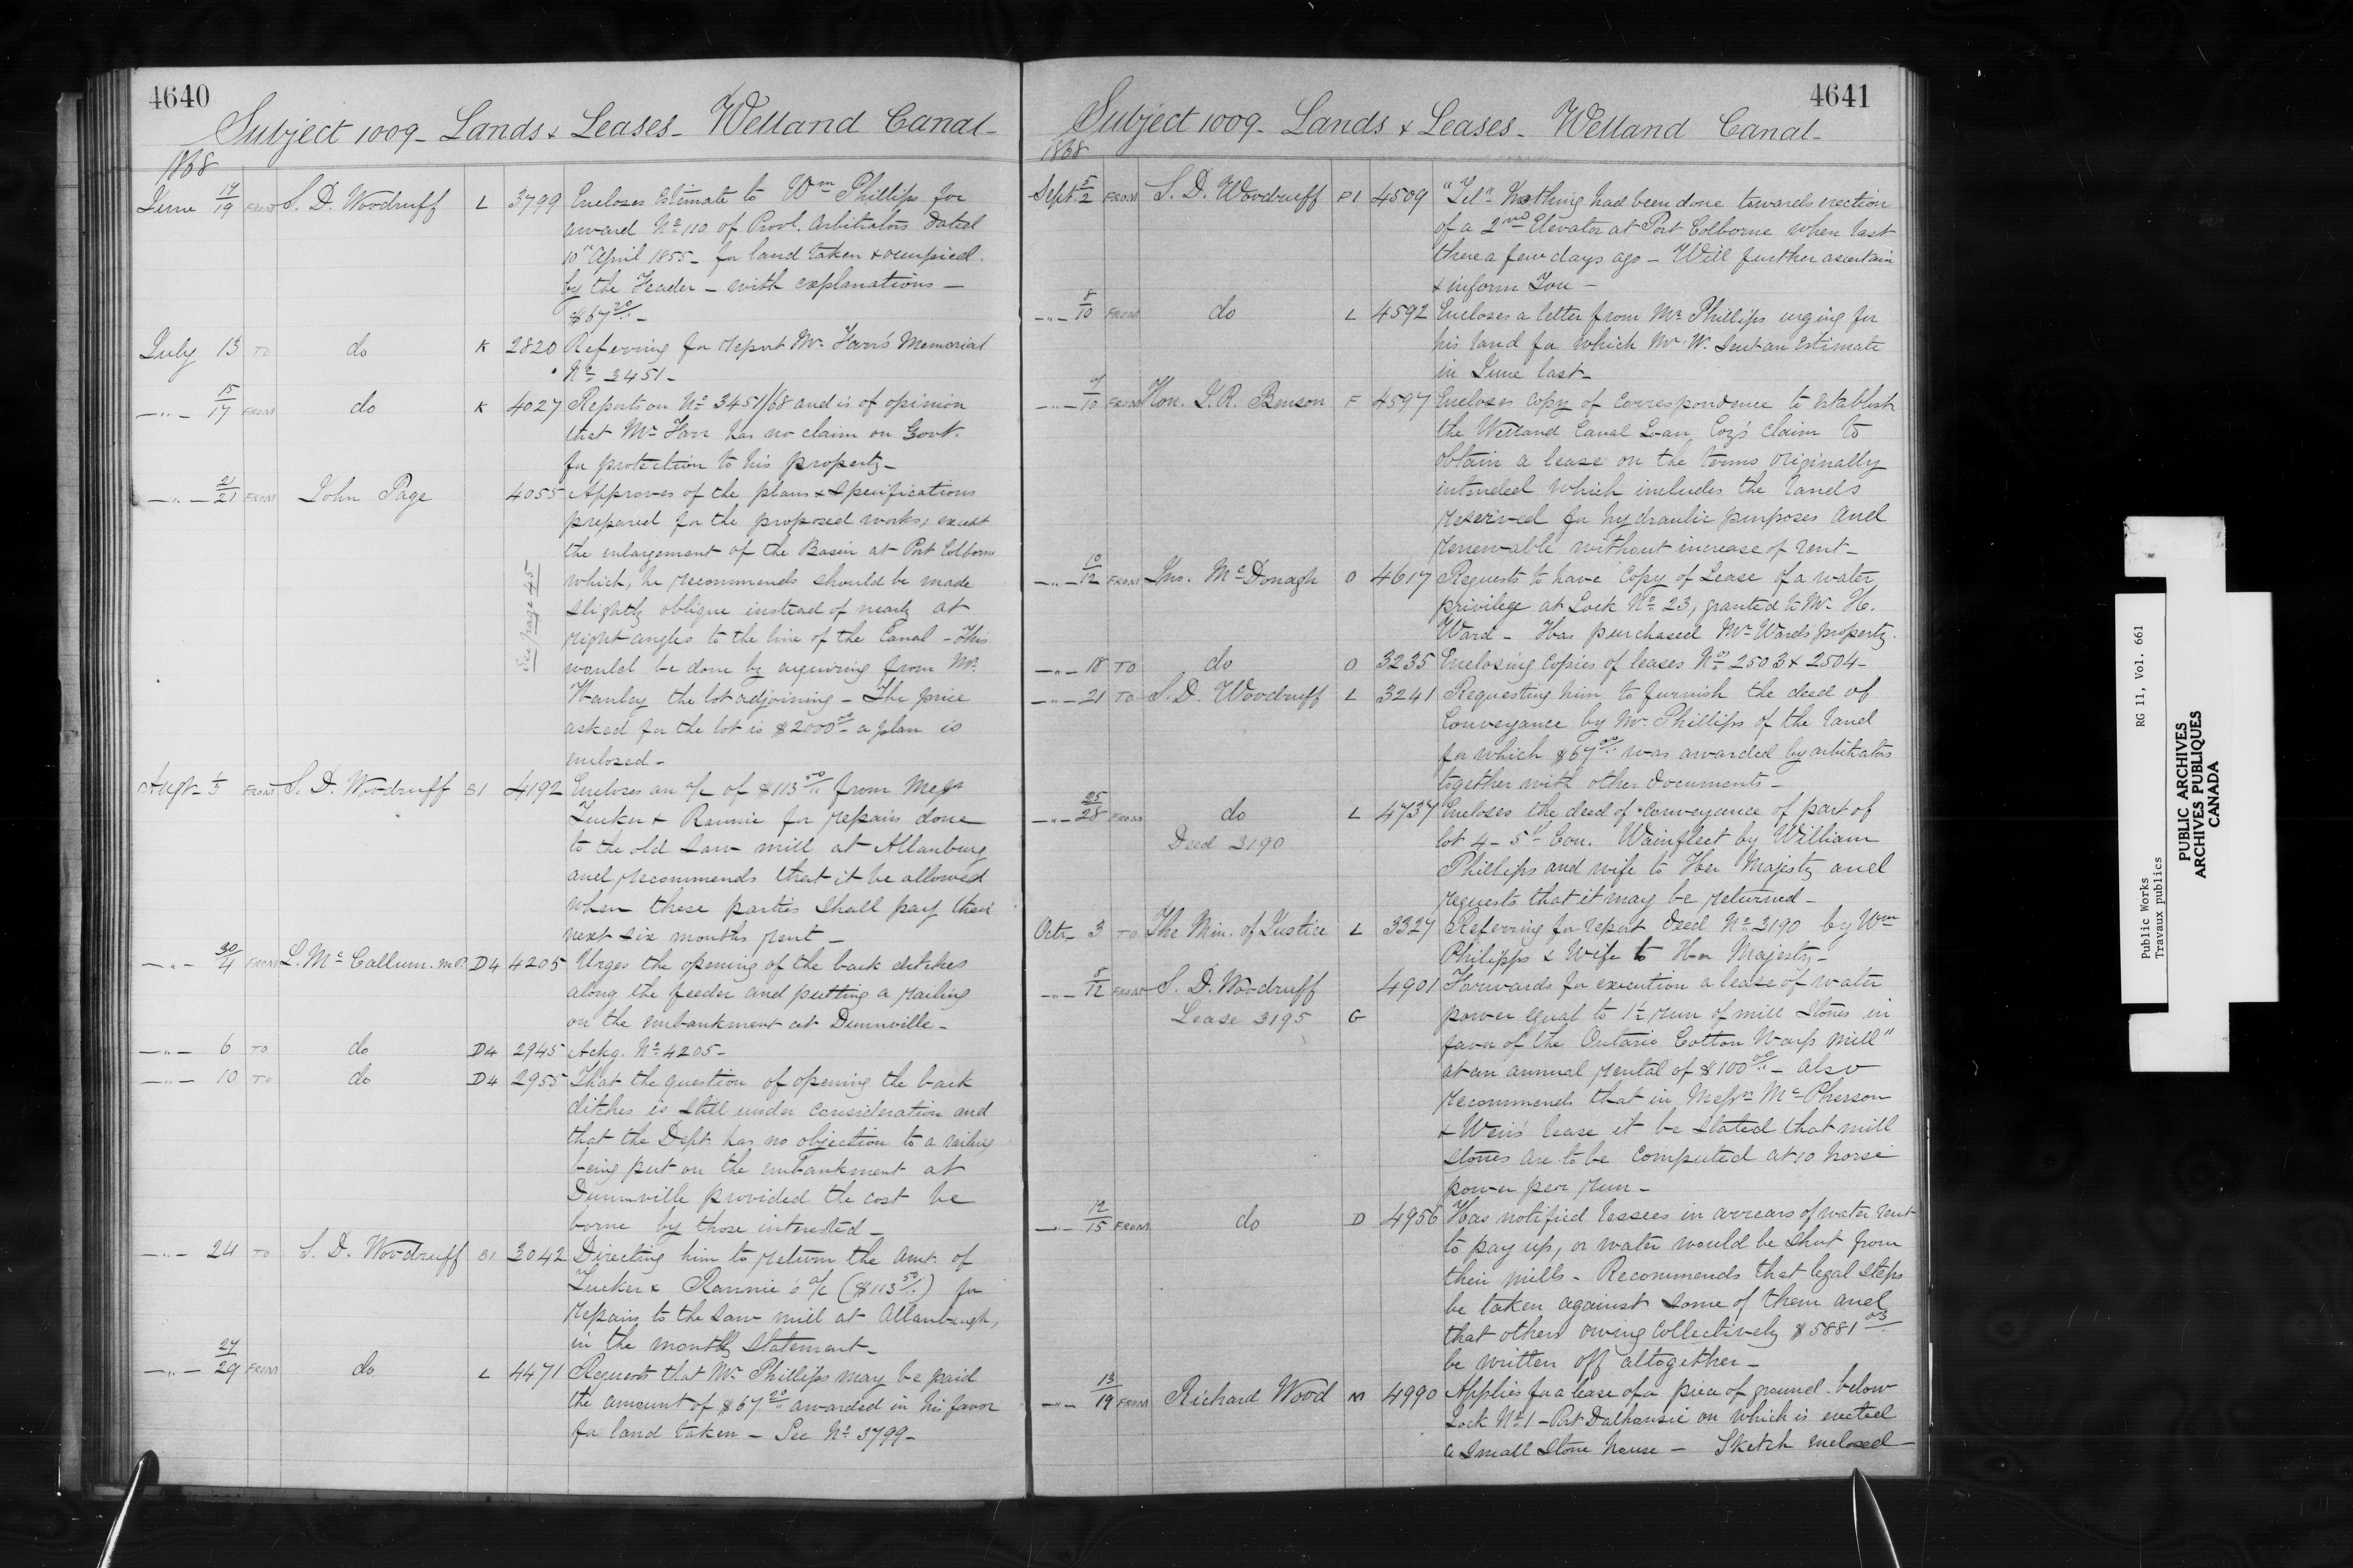 4640
Subject 1009 - Lands & Leases - Welland Canal -
1868
June 17/19 FROM S. D. Woodruff L 3799 Encloses estimate to Wm Phillips for
award No 110 of Provl. Arbitrators dated
10" April 1855 - for land taken & occupied
by the Feeder - with explanations -
$67 20/.. -
July 13 TO do K 2820 Referring for report Mr. Farr's Memorial
No 3451 -
-"- 15/17 FROM do K 4027 Reports on No 3451/68 and is of opinion
that Mr Farr has no claim on Govt.
for protection to his property -
-"- 21/21 FROM John Page 4055 Approves of the plans & specifications
prepared for the proposed works, except
the enlargement of the Basin at Port Colborne
which, he recommends should be made
slightly oblique instead of nearly at
right angles to the line of the Canal - This
would be done by acquiring from Mr.
Hanley the lot adjoining - The price
asked for the lot is $2000 00 - a plan is
enclosed -
See page 45
Augt - 1/5 FROM S. D. Woodruff B1 4192 Encloses an a/c of $113 50/.. from Messrs
Tucker & Rannie for repairs done
to the old Saw mill at Allanburg
and recommends that it be allowed
when these parties shall pay their
next six months rent -
-"- 30/4 FROM L. McCallum. M.P. D4 4205 Urges the opening of the back ditches
along the feeder and putting a railing
on the embankment at Dunnville -
-"- 6 TO do D4 2945 Ackg. No 4205 -
-"- 10 TO do D4 2955 That the question of opening the back
ditches is still under consideration and
that the Dept. has no objection to a railing
being put on the embankment at
Dunnville provided the cost be
borne by those interested -
-"- 24 TO S. D. Woodruff B1 3042 Directing him to return the amt. of
Tucker & Rannie's a/c ($113 50/..) for
repairs to the saw mill at Allanburgh,
in the monthly statement -
-"- 27/29 FROM do L 4471 Requests that Mr Phillips may be paid
the amount of $67 20/.. awarded in his favor
for land taken - See No 3799 -
4641
Subject 1009 - Lands & Leases - Welland Canal -
1868
Sept. 5/2 FROM S. D. Woodruff P1 4509 "Tel" Nothing had been done towards erection
of a 2nd Elevator at Port Colborne when last
there a few days ago - Will further ascertain
& inform You -
-"- 8/10 FROM do L 4592 Encloses a letter from Mr Phillips urging for
his land for which Mr W. sent an Estimate
in June last -
-"- 7/10 FROM Hon. J. R. Benson F 4597 Encloses copy of Correspondence to establish
the Welland Canal Loan Coy's claim to
obtain a lease on the terms originally
intended which includes the lands
reserved for hydraulic purposes and
renewable without increase of rent -
-"- 10/12 FROM Jno. McDonagh O 4617 Requests to have Copy of Lease of a water
privilege at Lock No 23, granted to Mr H.
Ward - Has purchased Mr Wards property.
-"- 18 TO do O 3235 Enclosing Copies of leases Nos 2503 & 2504 -
-"- 21 TO S. D. Woodruff L 3241 Requesting him to furnish the deed of
Conveyance by Mr Phillips of the land
for which $67 00/.. was awarded by arbitrators
together with other documents -
-"- 25/28 FROM do L 4737 Encloses the deed of conveyance of part of
Deed 3190 lot 4 - 5th Con. Wainfleet by William
Phillips and wife to Her Majesty and
requests that it may be returned -
Octr - 3 TO The Min. of Justice L 3327 Referring for report Deed No 3190 by Wm
Philipps & Wife to Her Majesty -
-"- 8/12 FROM S. D. Woodruff 4901 Forwards for execution a lease of water
Lease 3195 G power equal to 1½ run of mill stones in
favor of the Ontario Cotton Warp Mill"
at an annual rental of $100 00/.. - also
recommends that in Messrs McPherson
& Weir's lease it be stated that mill
stones are to be computed at 10 horse
power per run -
-"- 12/15 FROM do D 4956 Has notified lessees in arrears of water rent
to pay up, or water would be shut from
their mills - Recommends that legal steps
be taken against some of them and
that others owing collectively $5881 03
be written off altogether -
-"- 13/19 FROM Richard Wood M 4990 Applies for a lease of a piece of ground below
Lock No 1 - Port Dalhousie on which is erected
a small stone house - Sketch enclosed -
Public Works RG 11, Vol. 661
Travaux publics
PUBLIC ARCHIVES
ARCHIVES PUBLIQUES
CANADA